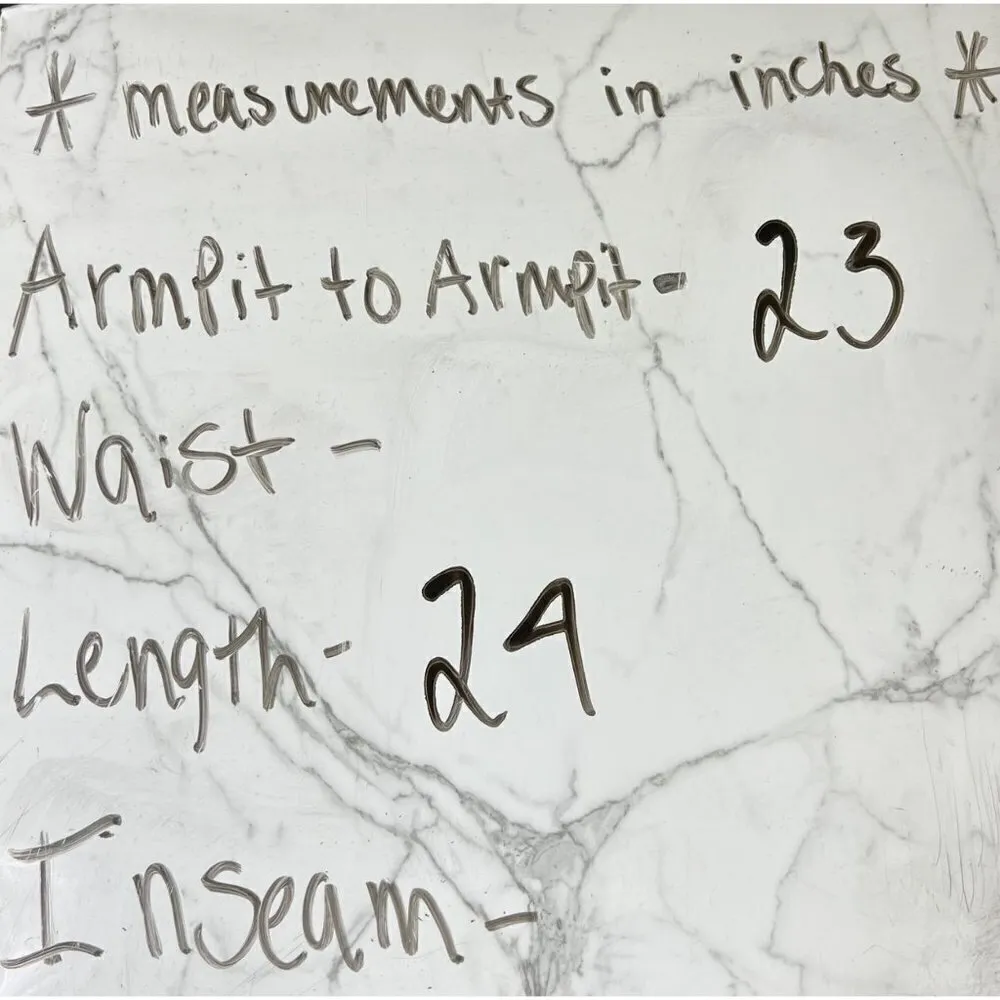 * measurements in inches *
Armpit to Armpit - 23
Waist -
Length - 24
Inseam -